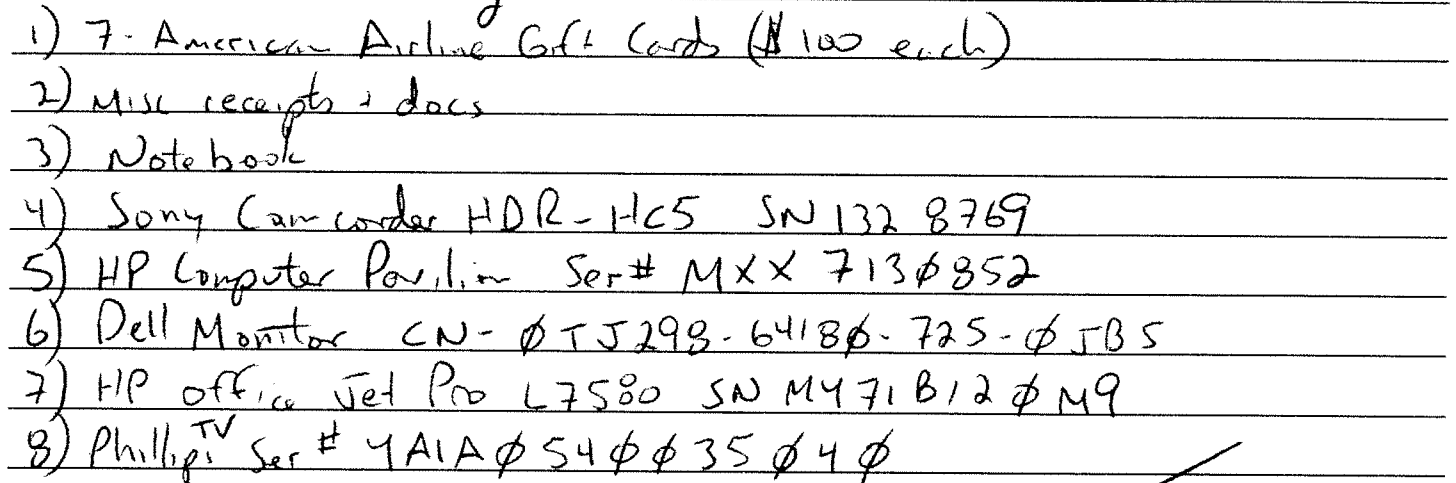 1) 7- American Airline Gift Cards ($100 each)
2) Misc receipts + docs
3) Notebook
4) Sony Camcorder HDR-HC5 SN 132 8769
5) HP Computer Pavilion Ser# MXX 713Ø852
6) Dell Monitor CN-ØTJ298-6418Ø-725-ØJBS
7) HP office Jet Pro L7580 SN MY71B12ØM9
8) Phillips TV Ser # YA1AØ54ØØ35Ø4Ø